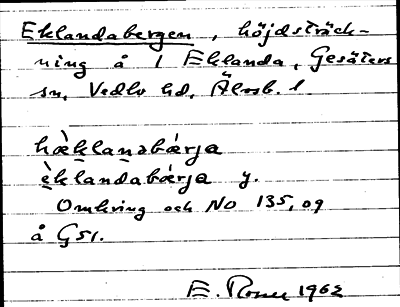 Eklandabergen, höjdsträck-
ning å 1 Eklanda, Gesäters
sn, Vedbo hd, Älvsb. l.
hæ̀klanabǽrja
è̱klandabǽrja y.
Omkring och NO 135,09
å G51.
E. 1962